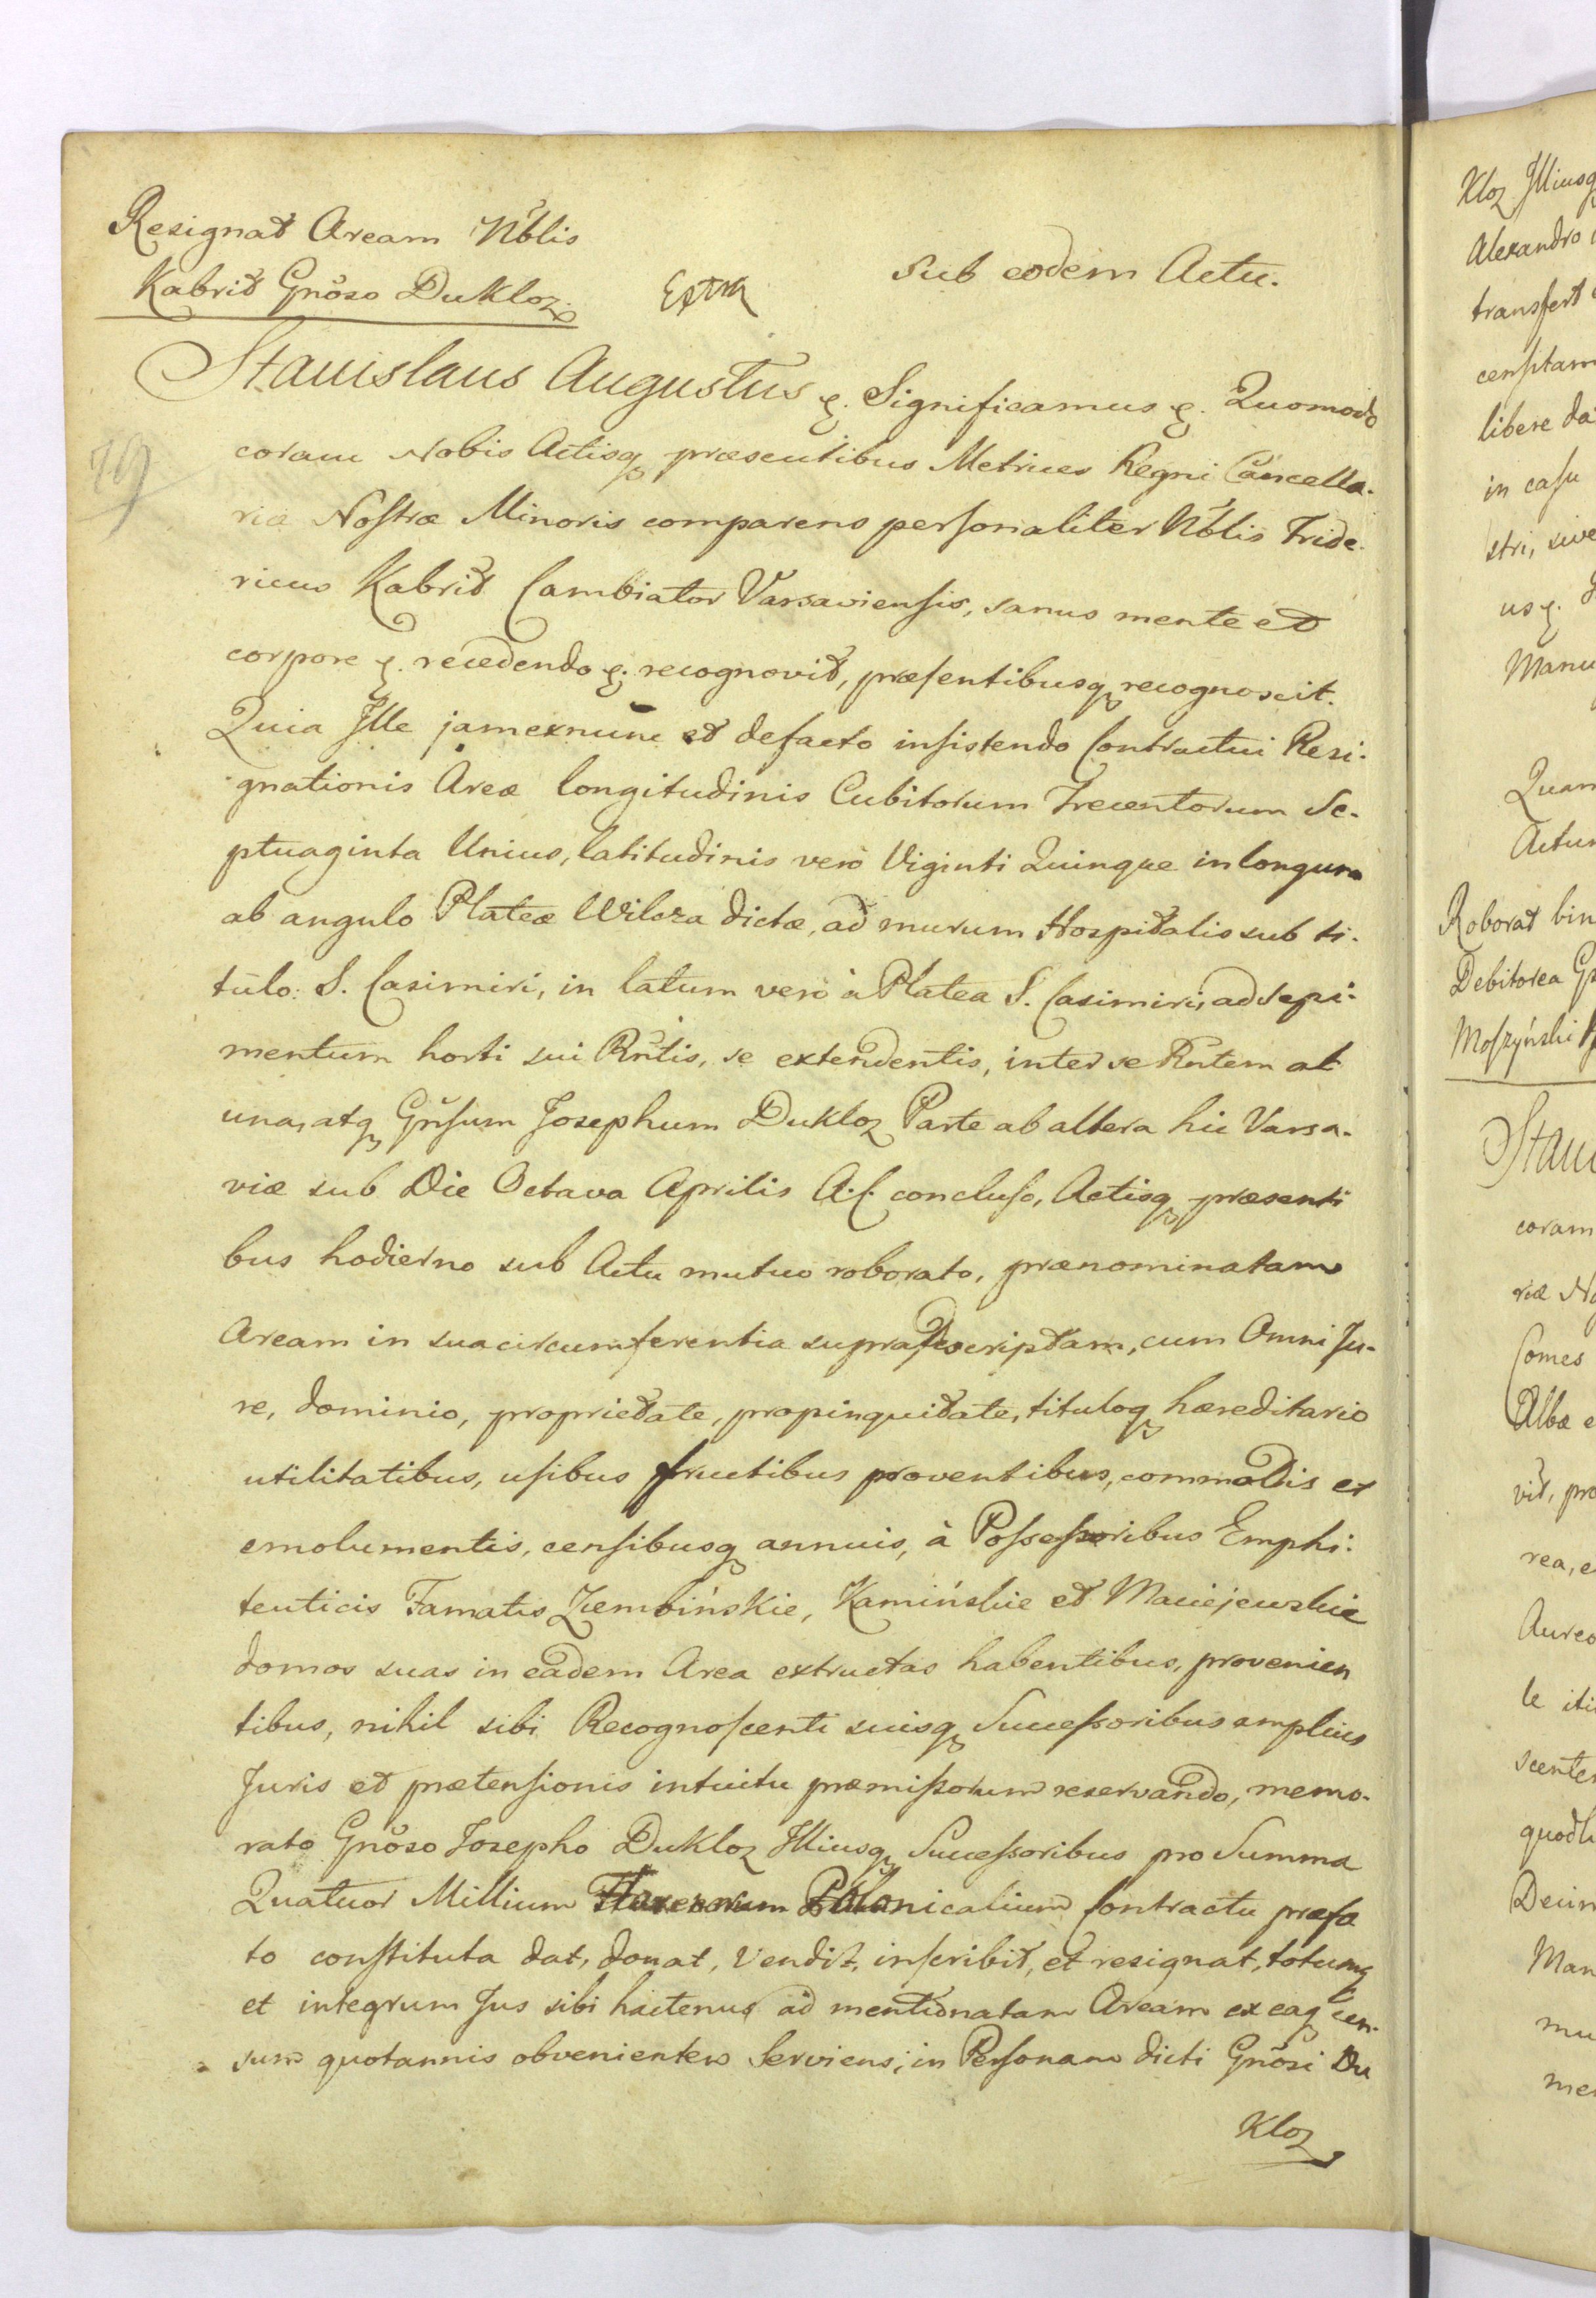 Resignat Aream Nblis
Kabrit Gnoso Dukloz.
Extra
Sub eodem Actu.
Stanislaus Augustus &. Significamus &. Quomodo
coram Nobis Actisq præsentibus Metrices Regni Cancella-
riæ Nostræ Minoris comparens personaliter Nblis Fride-
ricus Kabrit Cambiator Varsaviensis, sanus mente et
corpore &. recedendo &. recognovit, præsentibusq recognoscit.
Quia Ille jamexnunc et defacto insistendo Contractui Resi-
gnationis Areæ longitudinis Cubitorum Trecentorum Se-
ptuaginta Unius, latitudinis vero Viginti Quinque in longum
ab angulo Plateæ Wilcza dictæ, ad murum Hospitalis sub ti-
tulo: S. Casimiri, in latum vero à Platea S. Casimiri, ad sepi-
mentum horti sui Rntis, se extendentis, inter se Rntem ab
una, atq Gnsum Josephum Dukloz Parte ab altera hic Varsa-
viæ sub Die Octava Aprilis A.C. concluso, Actisq præsenti
bus hodierno sub Actu mutuo roborato, prænominatam
Aream in sua circumferentia supra Descriptam, cum Omni Ju-
re, dominio, proprietate, propinquitate, tituloq hæreditario
utilitatibus, usibus fructibus proventibus, commodis et
emolumentis, censibusq annuis, à Possessoribus Emphi-
teuticis Famatis Ziembińskie, Kamińskie et Maciejewskie
domos suas in eadem Area extructas habentibus, provenien
tibus, nihil sibi Recognoscenti suisq Successoribus amplius
Juris et prætensionis intuitu præmissorum reservando, memo-
rato Gnoso Josepho Dukloz Illiusq Successoribus pro Summa
Quatuor Millium Florenorum Polonicalium Contractu præfa
to constituta dat, donat, Vendit, inscribit, et resignat, totumq
et integrum Jus sibi hactenus ad mentionatam Aream ex eaq cen-
sum quotannis obvenientem Serviens, in Personam dicti Gnosi Du
Kloz
Kloz Illiusq
Alexandro
transfert
censitam
libere da
in casu
stri, sive
us &.
Manu
Quam
Actum
Roborat bin
Debitorea
Moszyński
Stani
coram
riæ No
Comes
Albæ
vit, præ
rea, e
Aureo
le iti
scente
quodli
Decim
Man
mu
me